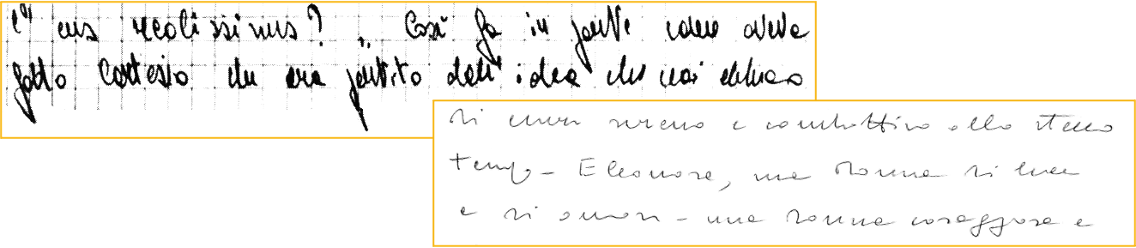 ens realissimus? Così fa in parte come aveva
fatto Cartesio che era partito dall'idea che noi abbiamo
di sereno e combattivo allo stesso
tempo - Eleonora, una donna di luce
e di amori - una donna coraggiosa e